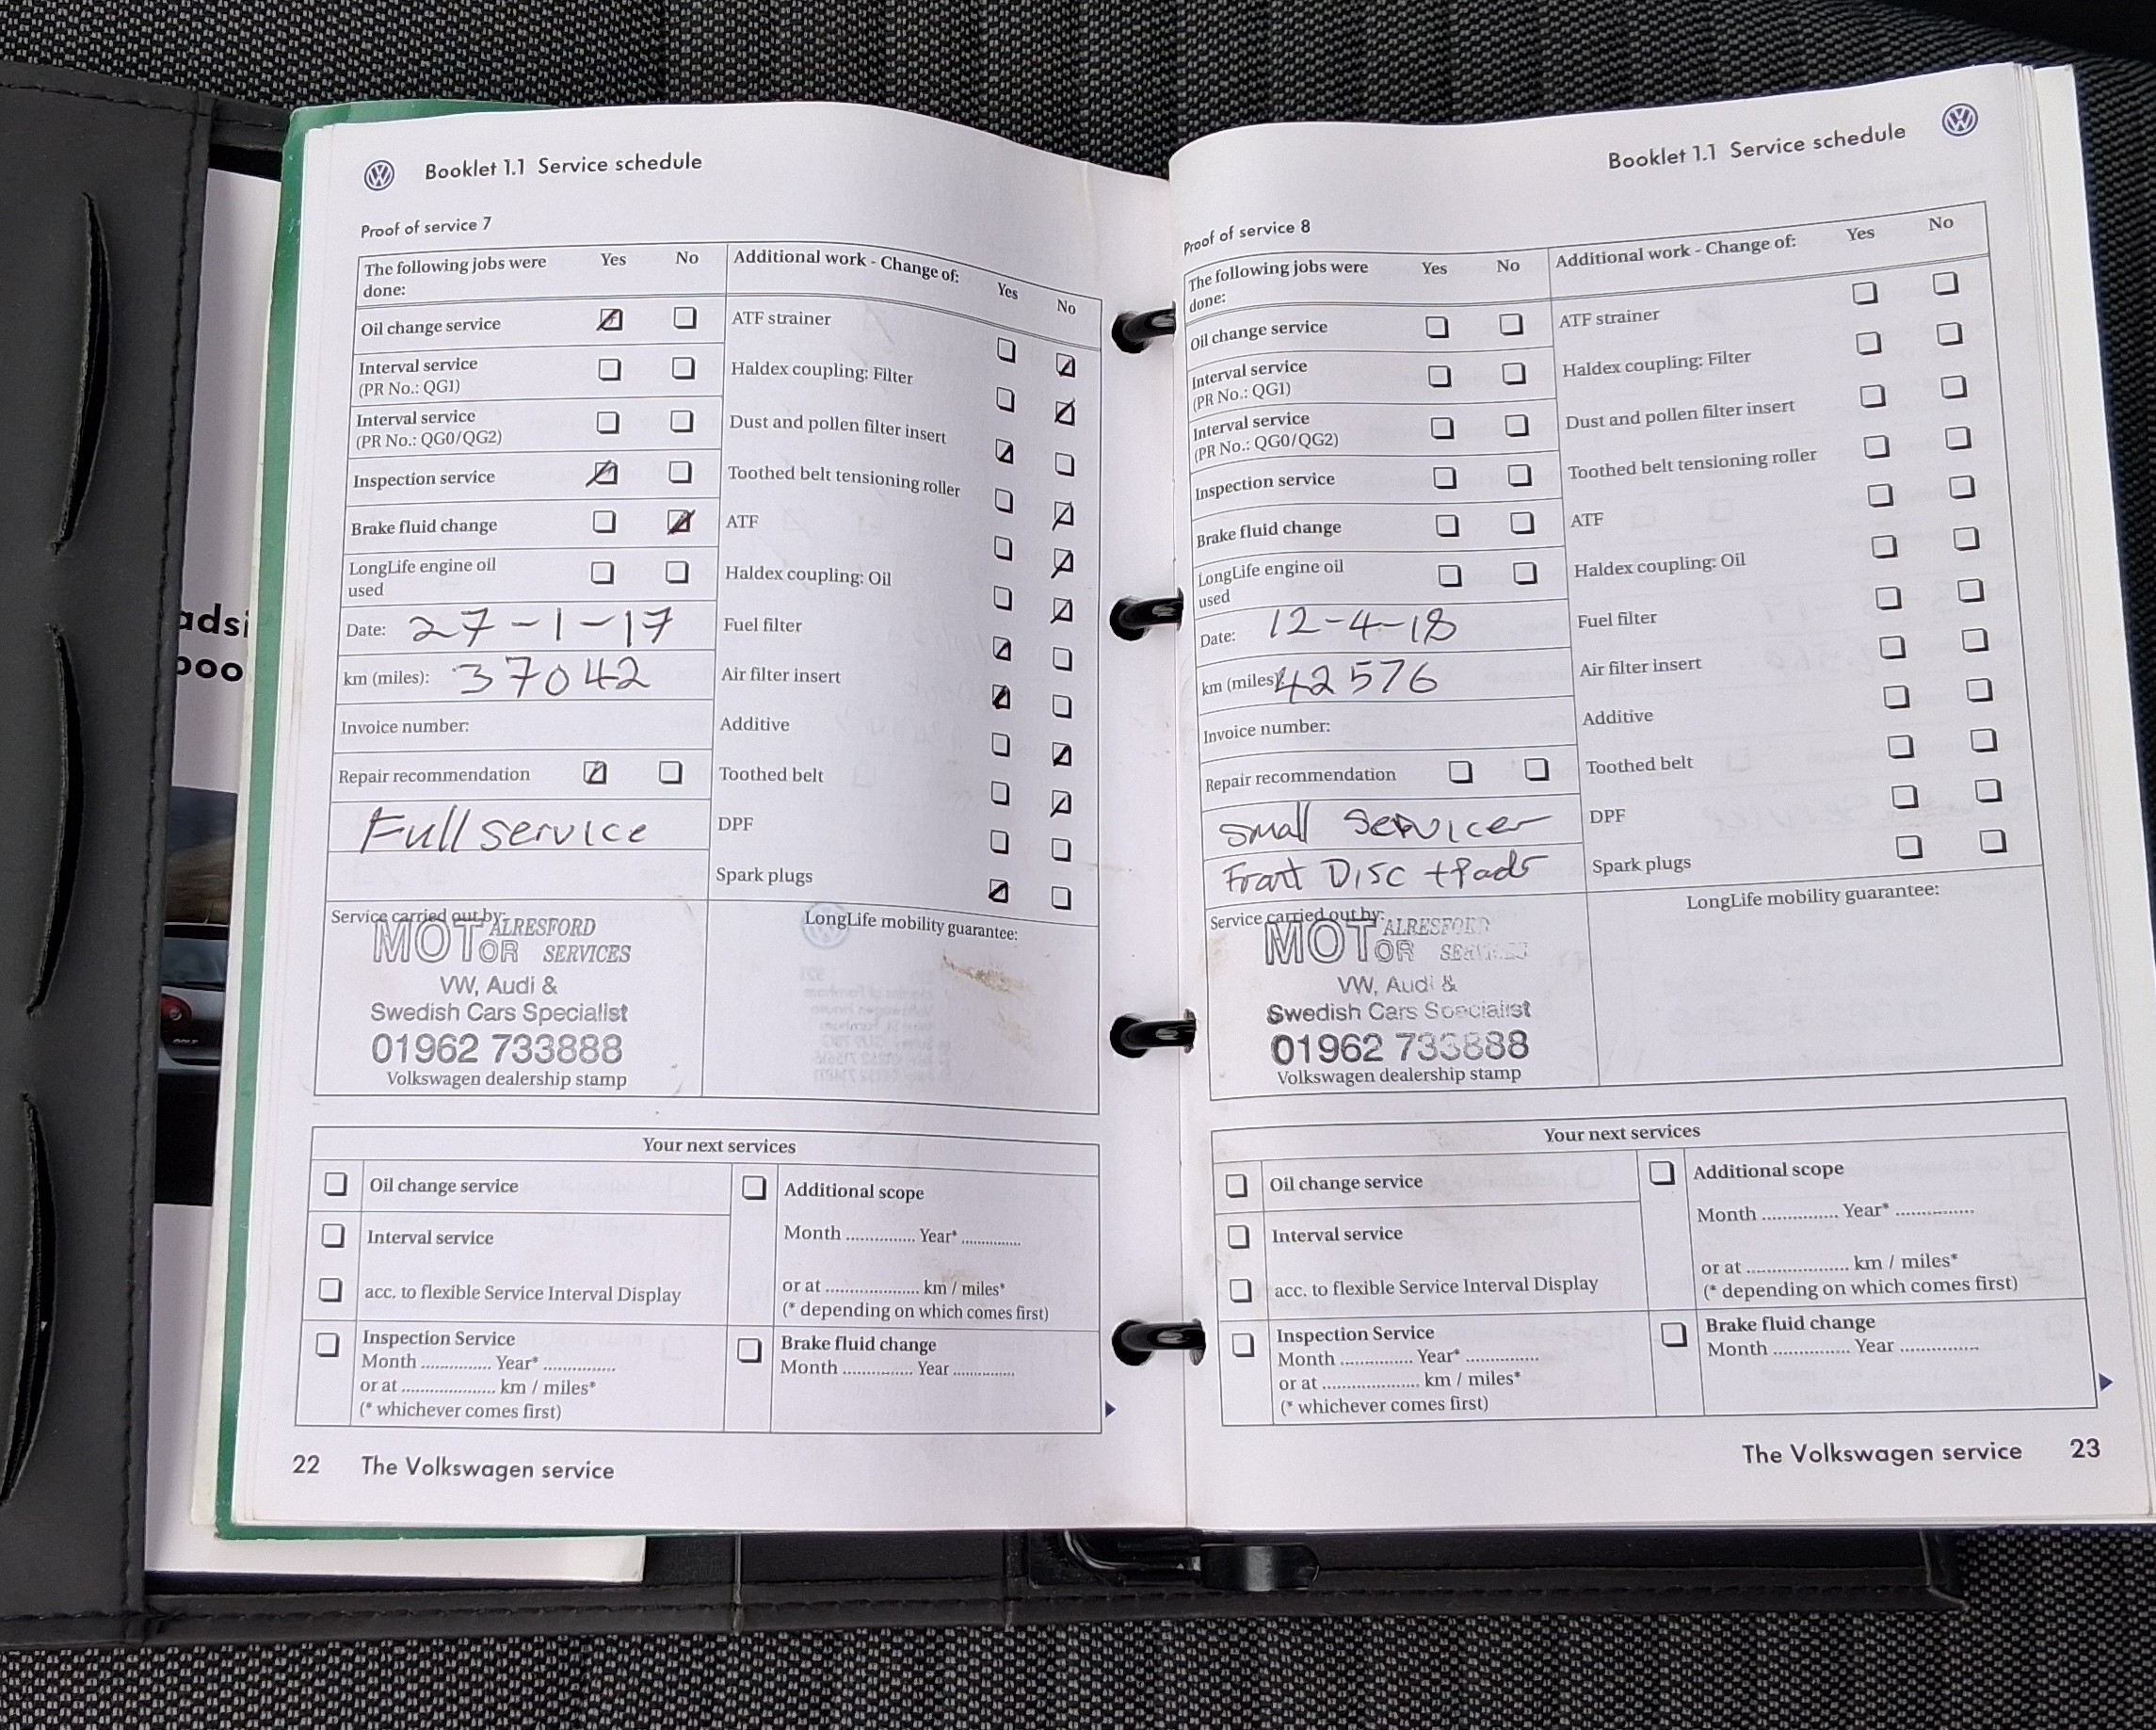 Booklet 1.1 Service schedule
Proof of service 7
The following jobs were done:
Yes
No
Additional work - Change of:
Yes
No
Oil change service
Interval service
(PR No.: QG1)
Interval service
(PR No.: QG0/QG2)
Inspection service
Brake fluid change
LongLife engine oil
used
Date: 27-1-17
km (miles): 37042
Invoice number:
Repair recommendation
Full service
ATF strainer
Haldex coupling: Filter
Dust and pollen filter insert
Toothed belt tensioning roller
ATF
Haldex coupling: Oil
Fuel filter
Air filter insert
Additive
Toothed belt
DPF
Spark plugs
Service carried out by:
MOTOR ALRESFORD
SERVICES
VW, Audi &
Swedish Cars Specialist
01962 733888
Volkswagen dealership stamp
LongLife mobility guarantee:
Your next services
Oil change service
Interval service
acc. to flexible Service Interval Display
Inspection Service
Month .............. Year* ..............
or at .................... km / miles*
(* whichever comes first)
Additional scope
Month .............. Year* ..............
or at .................... km / miles*
(* depending on which comes first)
Brake fluid change
Month .............. Year ..............
22 The Volkswagen service
Booklet 1.1 Service schedule
Proof of service 8
The following jobs were
done:
Yes
No
Additional work - Change of:
Yes
No
Oil change service
Interval service
(PR No.: QG1)
Interval service
(PR No.: QG0/QG2)
Inspection service
Brake fluid change
LongLife engine oil
used
Date: 12-4-18
km (miles): 42576
Invoice number:
Repair recommendation
Small Service
Front Disc + Pads
ATF strainer
Haldex coupling: Filter
Dust and pollen filter insert
Toothed belt tensioning roller
ATF
Haldex coupling: Oil
Fuel filter
Air filter insert
Additive
Toothed belt
DPF
Spark plugs
Service carried out by:
MOTOR ALRESFORD
SERVICES
VW, Audi &
Swedish Cars Specialist
01962 733888
Volkswagen dealership stamp
LongLife mobility guarantee:
Your next services
Oil change service
Interval service
acc. to flexible Service Interval Display
Inspection Service
Month .............. Year* ..............
or at .................... km / miles*
(* whichever comes first)
Additional scope
Month .............. Year* ..............
or at .................... km / miles*
(* depending on which comes first)
Brake fluid change
Month .............. Year ..............
The Volkswagen service 23